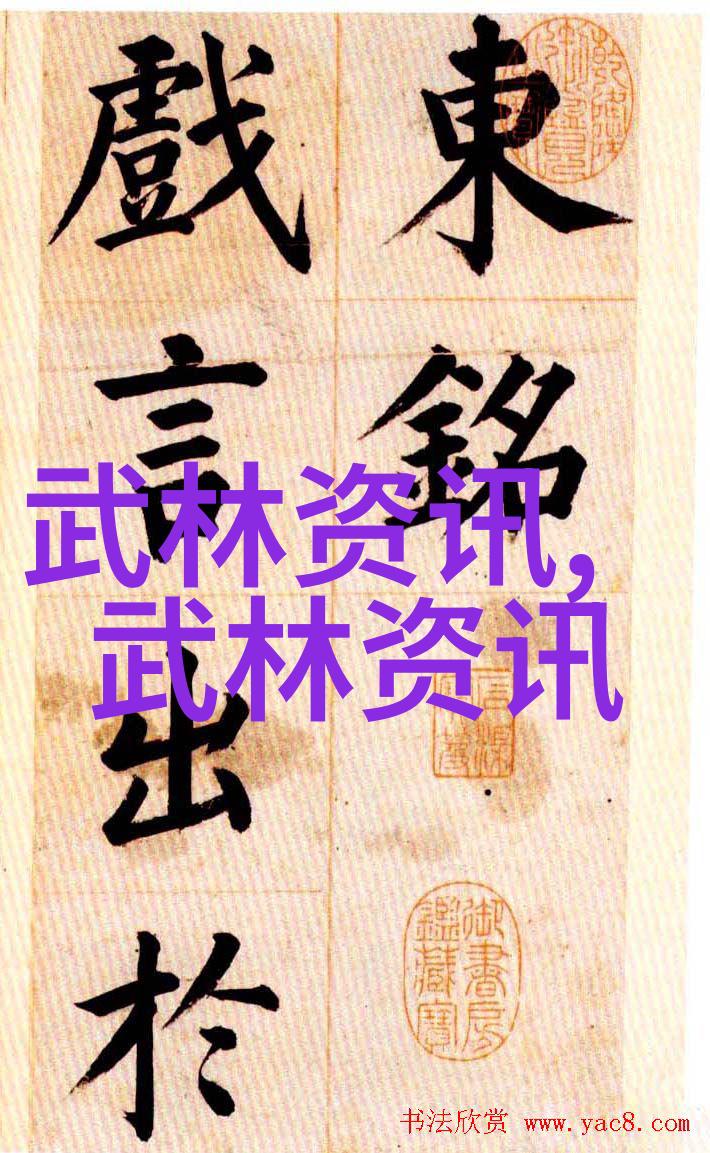 東銘
戲言出於
御書房
鑑藏寶
武林资讯,
武林资讯
书法欣赏 www.yac8.com